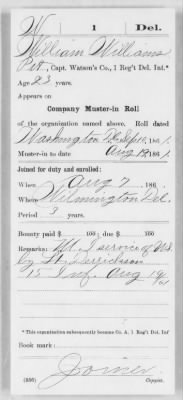 W 1 Del.
William Williams
Pvt., Capt. Watson's Co., 1 Reg't Del. Inf.*
Age 23 years
Appears on
Company Muster-in Roll
of the organization named above. Roll dated
Washington D.C. Sep 10, 1861.
Muster-in to date Aug 19, 1861.
Joined for duty and enrolled:
When Aug 7, 186 .
Where Wilmington Del.
Period 3 years.
Bounty paid $ 100; due $ 100
Remarks: M. I service of U.S.
by Lt.
15 Inf. Aug 19/61
*This organization subsequently became Co. A, 1 Reg't Del. Inf
Book mark:
Joiner
(356) Copyist.